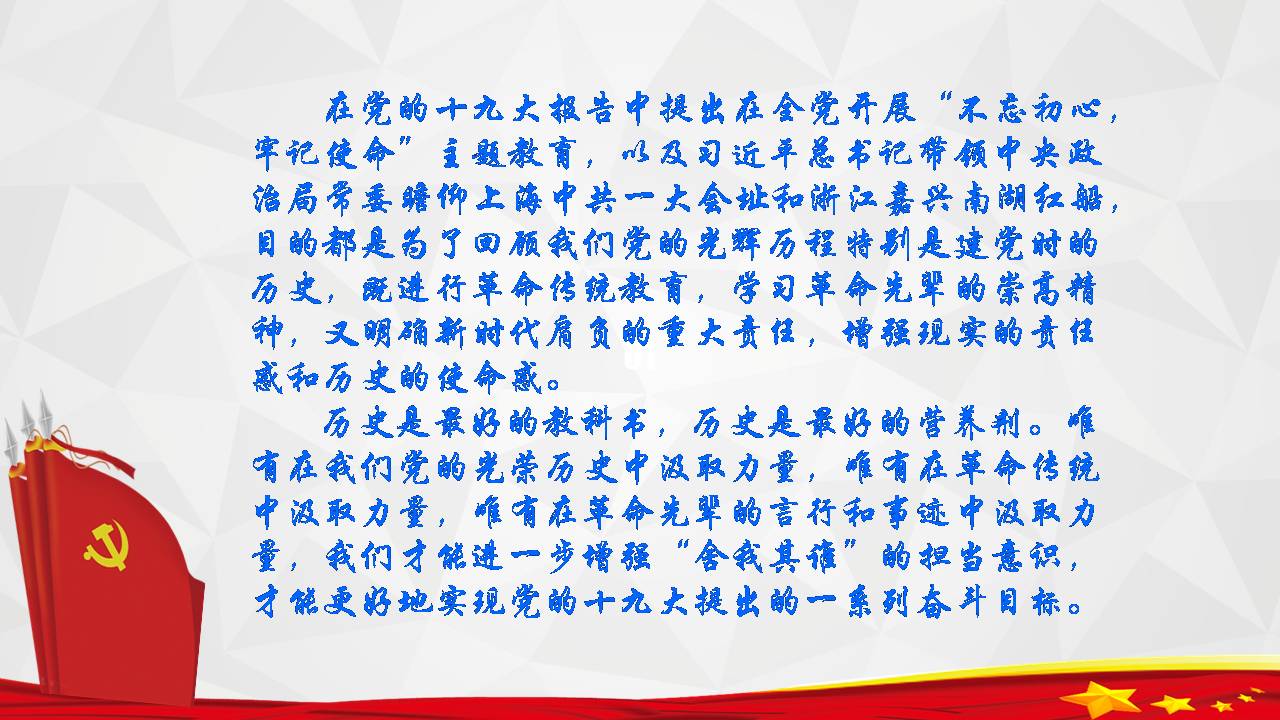 在党的十九大报告中提出在全党开展“不忘初心，
牢记使命”主题教育，以及习近平总书记带领中央政
治局常委瞻仰上海中共一大会址和浙江嘉兴南湖红船，
目的都是为了回顾我们党的光辉历程特别是建党时的
历史，既进行革命传统教育，学习革命先辈的崇高精
神，又明确新时代肩负的重大责任，增强现实的责任
感和历史的使命感。
历史是最好的教科书，历史是最好的营养剂。唯
有在我们党的光荣历史中汲取力量，唯有在革命传统
中汲取力量，唯有在革命先辈的言行和事迹中汲取力
量，我们才能进一步增强“舍我其谁”的担当意识，
才能更好地实现党的十九大提出的一系列奋斗目标。